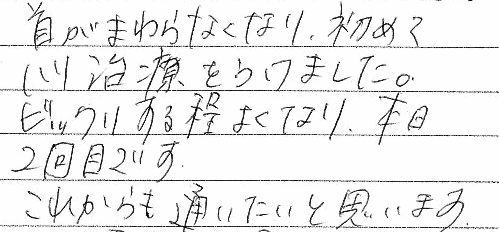 首がまわらなくなり、初めて
ハリ治療をうけました。
ビックリする程よくなり、本日
2回目です。
これからも通いたいと思います。